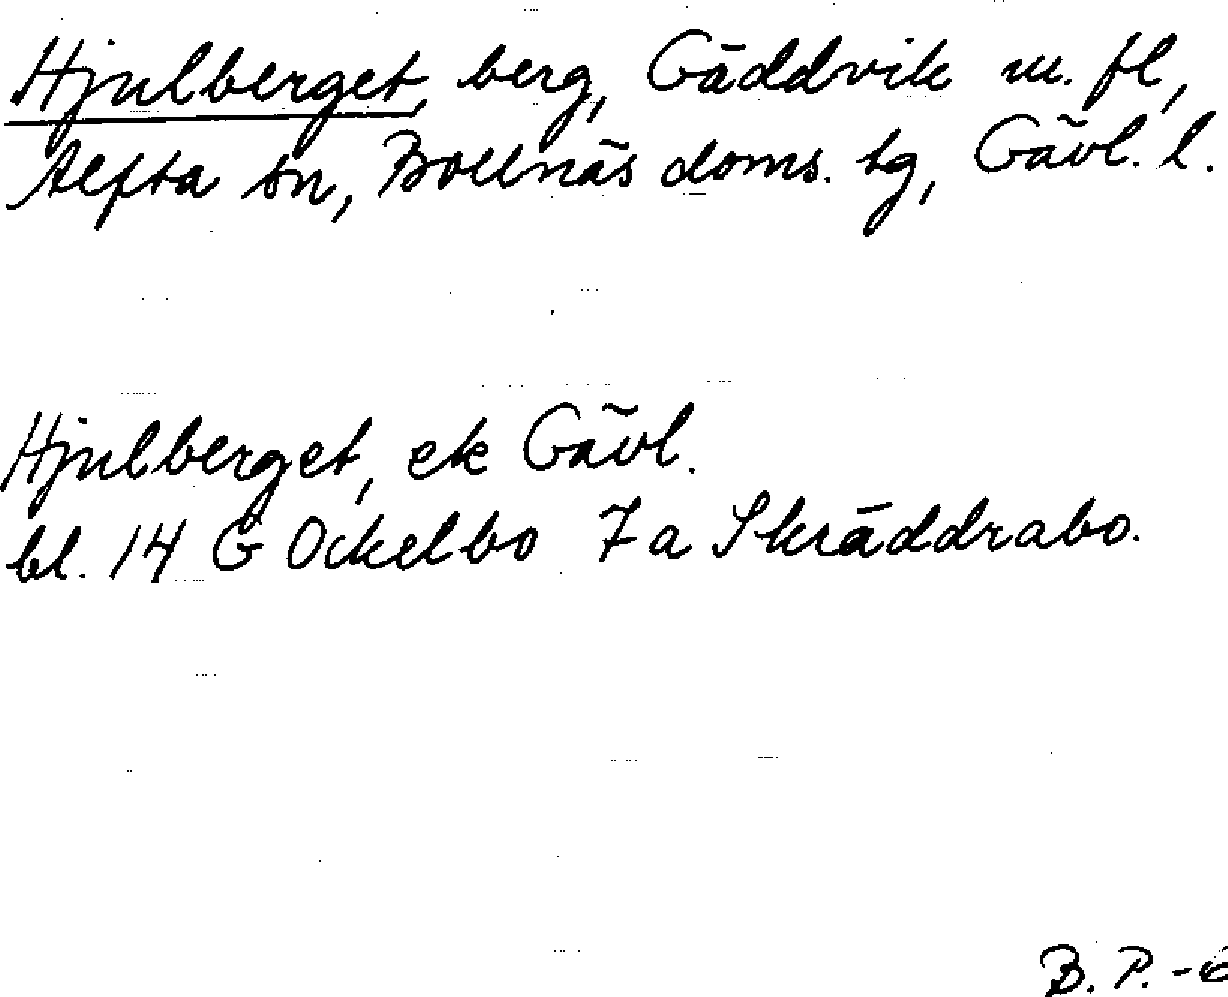 Hjulberget, berg, Gäddvik m. fl,
Alfta sn, Bollnäs doms. tg, Gävl. l.
Hjulberget, ek Gävl.
bl. 14 G Ockelbo 7 a Skräddrabo.
B. P. -6